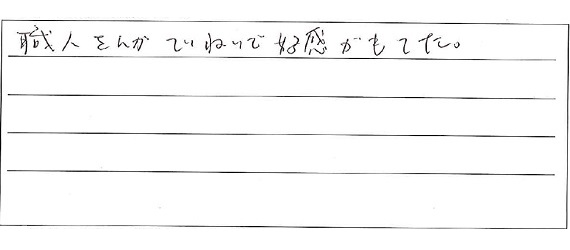 職人さんが ていねいで 好感がもてた。